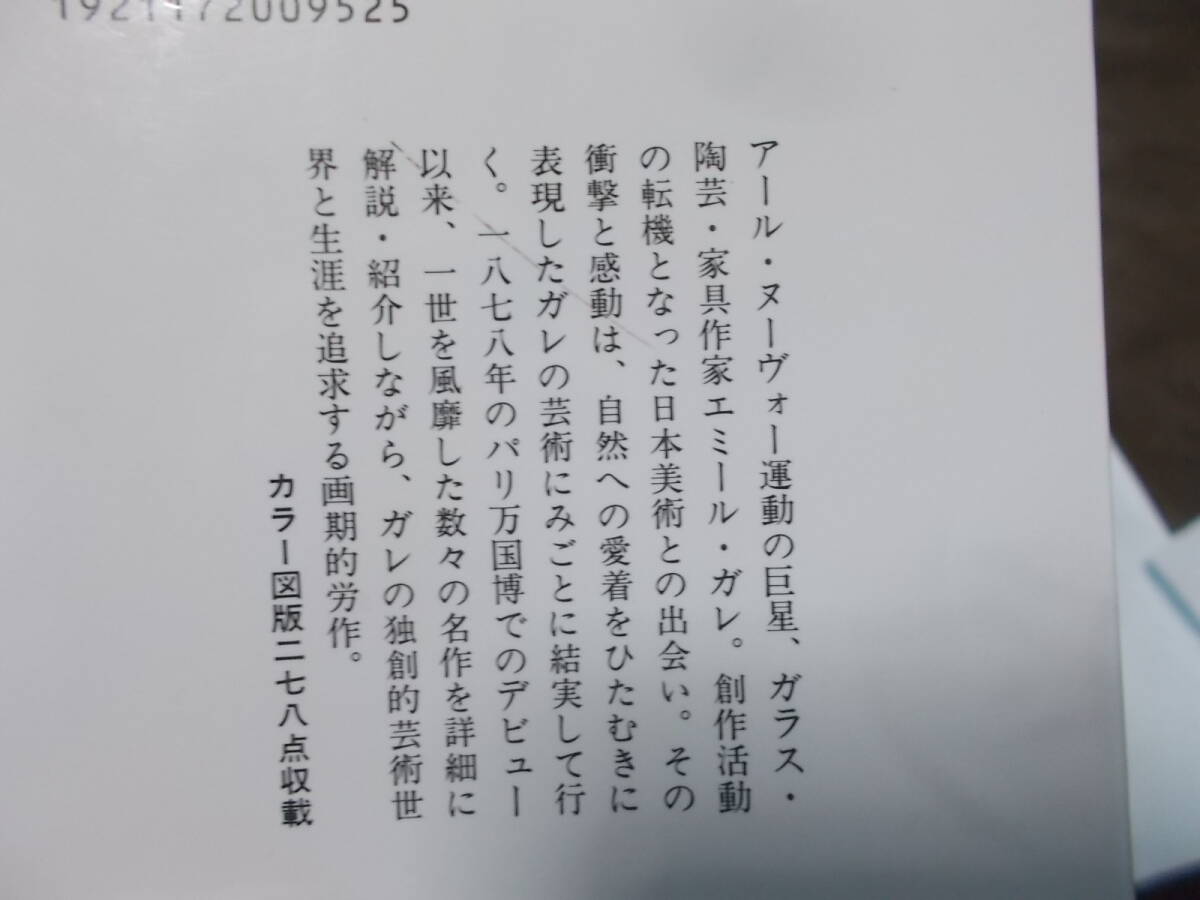 1921172009525
アール・ヌーヴォー運動の巨星、ガラス・
陶芸・家具作家エミール・ガレ。創作活動
の転機となった日本美術との出会い。その
衝撃と感動は、自然への愛着をひたむきに
表現したガレの芸術にみごとに結実して行
く。一八七八年のパリ万国博でのデビュー
以来、一世を風靡した数々の名作を詳細に
解説・紹介しながら、ガレの独創的芸術世
界と生涯を追求する画期的労作。
カラー図版二七八点収載